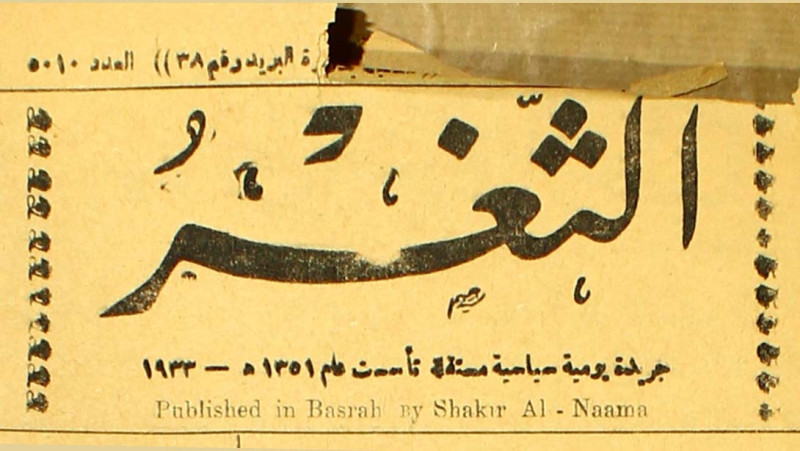 رة البريد رقم ٣٨)) العدد ٥٠١٠
الثَّغْرُ
جريدة يومية سياسية مستقلة تأسست عام ١٣٥١ ه — ١٩٣٣
Published in Basrah By Shakir Al - Naama